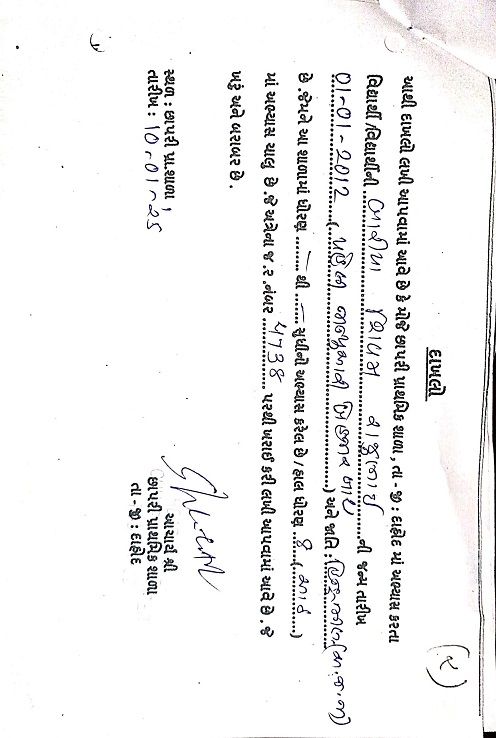 (૨)
દાખલો
આથી દાખલો લખી આપવામાં આવે છે કે મોજે છાપરી પ્રાથમિક શાળા, તા - જી : દાહોદ માં અભ્યાસ કરતા
વિદ્યાર્થી/વિદ્યાર્થીની શિવમ રાજુભાઈ ની જન્મ તારીખ
01-01-2012 (પહેલી જાન્યુઆરી બે હજાર બાર) અને જાતિ :
છે. જેમને આ શાળામાં ધોરણ — થી — સુધીનો અભ્યાસ કરેલ છે / હાલ ધોરણ ૮ (આઠ)
માં અભ્યાસ ચાલુ છે. જે અત્રેના જ. ર. નંબર ૫738 પરથી ખરાઈ કરી લખી આપવામાં આવે છે. જે
ખરૂં અને બરાબર છે.
સ્થળ : છાપરી પ્રા.શાળા,
તારીખ : 10-01-25
આચાર્ય શ્રી
છાપરી પ્રાથમિક શાળા
તા - જી : દાહોદ